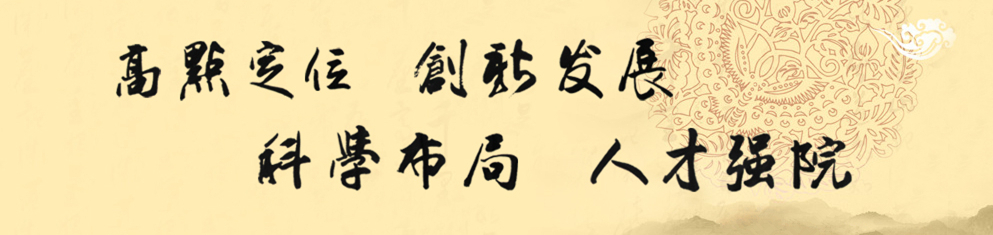 高點定位 創新发展
科學布局 人才强院